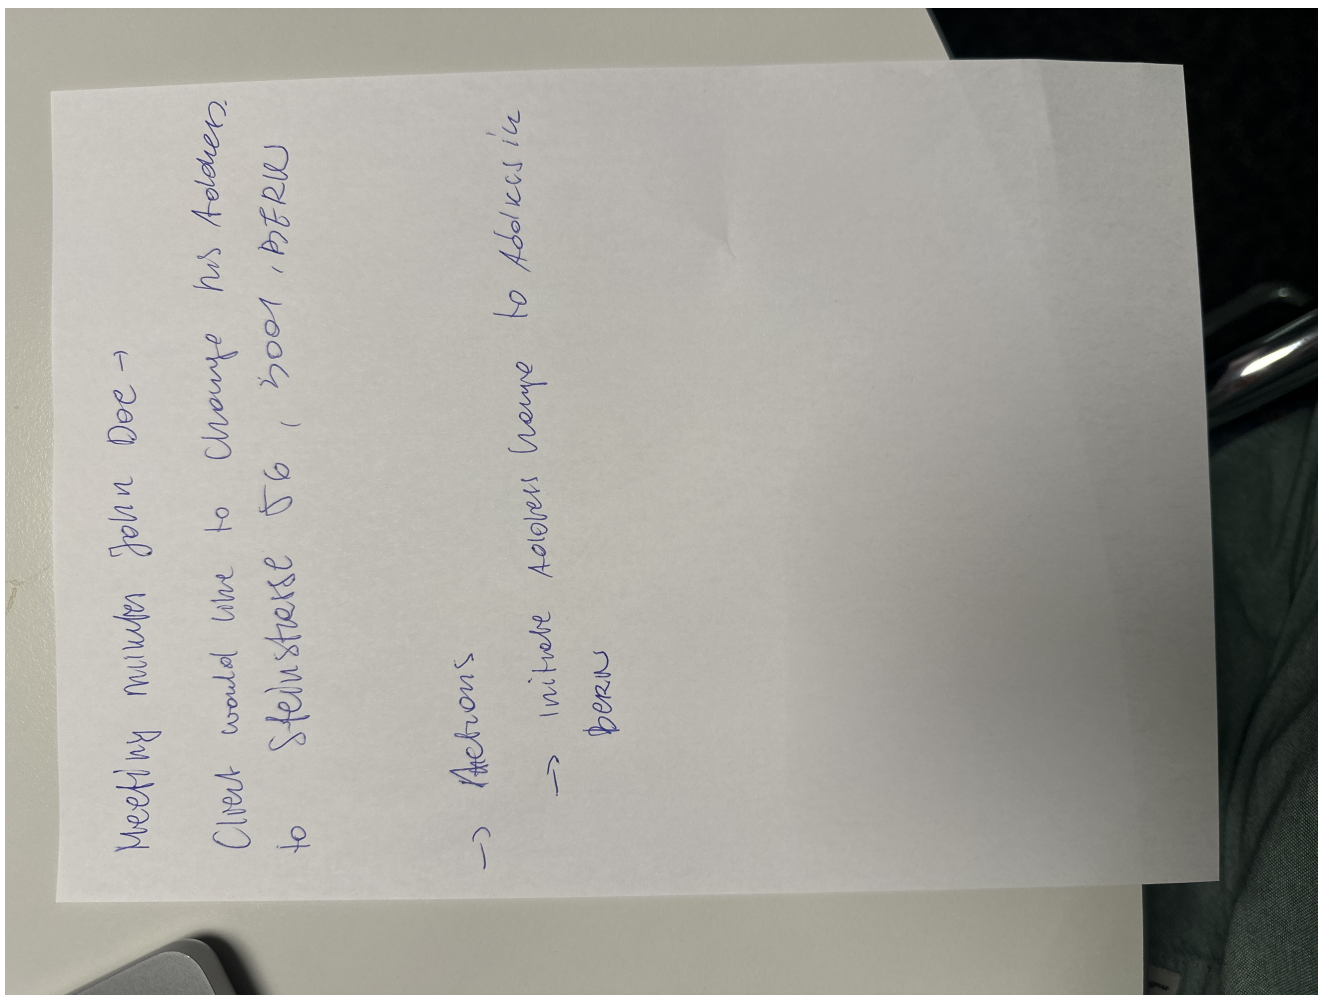 Meeting minutes John Doe →
Client would like to change his Address
to Steinstrasse 56, 3001, BERN
→ Actions
→ Initiate Address change to Address in
BERN